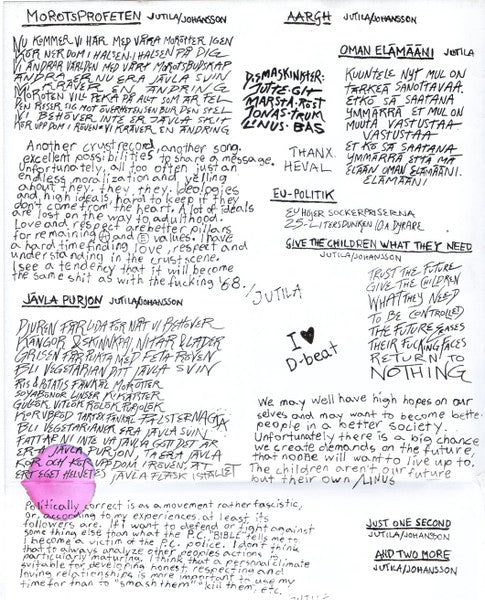 MOROTSPROFETEN JUTILA/JOHANSSON
NU KOMMER VI HÄR MED VÅRA MORÖTTER IGEN
KÖR NER DOM I HALSEN I HALSEN PÅ DIG
VI ÄNDRAR VÄRLDEN MED VÅRT MOROTSBUDSKAP
ÄNDRA ER NU ERA JÄVLA SVIN
VI KRÄVER EN ÄNDRING
MOROTEN VILL PEKA PÅ ALLT SOM ÄR FEL
DEN RESER SIG MOT ÖVERHETEN SEN BUR DEN SPEL
VI BEHÖVER INTE ER JÄVLA SKIT
KÖR UPP DOM I RÖVEN VI KRÄVER EN ÄNDRING
Another crustrecord, another song.
excellent possibilities to share a message.
Unfortunately, all too often just an
endless moralization and yelling
about they, they, they. Ideologies
and high ideals, hard to keep if they
don't come from the heart. A lot of ideals
are lost on the way to adulthood.
Love and respect are better pillars
for remaining Ⓐ and Ⓔ values. I have
a hard time finding love, respect and
understanding in the crust scene.
I see a tendency that it will become
the same shit as with the fucking '68.
/JUTILA
JÄVLA PURJON JUTILA/JOHANSSON
DJUREN FÅR LIDA FÖR NÅT VI BEHÖVER
KÄNGOR & SKINNPAJ, NITAR & LÄDER
GRISEN FÅR PUNTA MED FETA RÖVEN
BLI VEGETARIAN DITT JÄVLA SVIN
RIS & POTATIS MOROTTER
SOYABÖNOR LINSER KIKÄRTER
GULLÖK, VITLÖK RÖLÖK PURJOLÖK
KORVBRÖD PALSTERNACKA
BLI VEGETARIANER ERA JÄVLA SVIN
FATTAR NI INTE VA JÄVLA GOTT DET ÄR
ER JÄVLA PURJON, TA ERA JÄVLA
KOR OCH KÖR UPP DOM I RÖVEN, ÄT
ERT EGET HELVETES JÄVLA FLÄSK ISTÄLLET
Politically correct is as a movement rather fascistic,
or, according to my experiences, at least its
followers are. If I want to defend or fight against
some thing else than what the P.C. "BIBLE" tells me to
I become a victim of the P.C. police. I don't think
that to always analyze other peoples actions is
particularly maturing. I think that a personal climate
suitable for developing honest, respecting and
loving relationships is more important to use my
time for than to "smash them" kill them, etc.
JUTILA
AARGH JUTILA/JOHANSSON
D-EMASKINKTER:
JUTTE-GIT
MARSTA-RÖST
JONAS-TRUM
LINUS-BAS
THANX.
HEVAL
OMAN ELÄMÄÄNI JUTILA
KUUNTELE NYT MUL ON
TÄRKEÄ SANOTTAVAA.
ETKÖ SÄ SAATANA
YMMÄRRÄ ET MUL ON
MUUTA VASTUSTAA
VASTUSTAA
ET KÖ SÄ SAATANA
YMMÄRRÄ ETTÄ MÄ
ELÄÄN OMAN ELÄMÄÄNI.
ELÄMÄÄNI
EU-POLITIK
EU HÖJER SOCKERPRISERNA
25-LITERSDUNKEN 10:A DYRARE
GIVE THE CHILDREN WHAT THEY NEED
JUTILA/JOHANSSON
TRUST THE FUTURE
GIVE THE CHILDREN
WHAT THEY NEED
TO BE CONTROLLED
THE FUTURE
THEIR FUCKING FACES
RETURN TO
NOTHING
I ♥
D-beat
We may well have high hopes on our
selves and may want to become better
people in a better society.
Unfortunately there is a big chance
we create demands on the future,
that noone will want to live up to.
The children aren't our future
but their own /LINUS
JUST ONE SECOND
JUTILA/JOHANSSON
AND TWO MORE
JUTILA/JOHANSSON